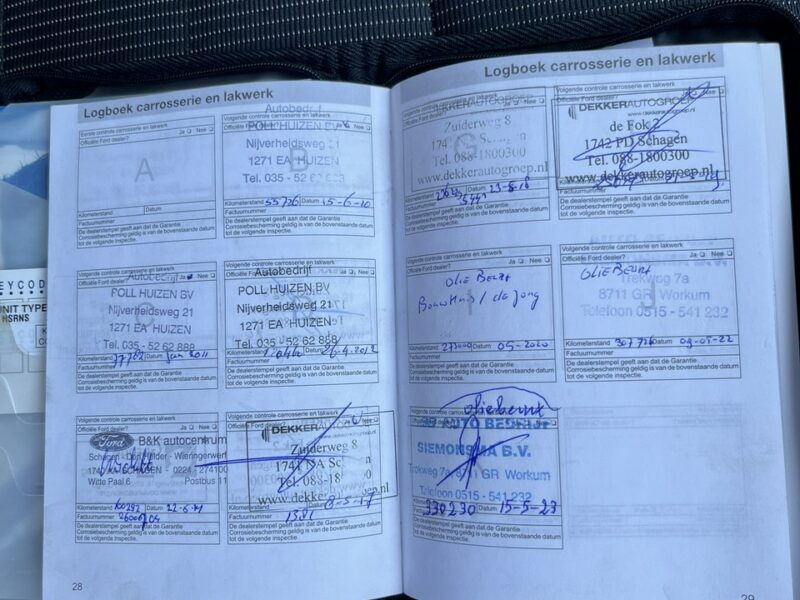 Logboek carrosserie en lakwerk
Eerste controle carrosserie en lakwerk
Officiële Ford dealer? Ja Nee
A
Kilometerstand Datum
Factuurnummer
De dealerstempel geeft aan dat de Garantie
Corrosiebescherming geldig is van de bovenstaande datum
tot de volgende inspectie.
Volgende controle carrosserie en lakwerk
Autobedrijf
POLL HUIZEN BV
Nijverheidsweg 21
1271 EA HUIZEN
Tel. 035 - 52 62 888
Kilometerstand 55726 Datum 15-6-10
Factuurnummer
De dealerstempel geeft aan dat de Garantie
Corrosiebescherming geldig is van de bovenstaande datum
tot de volgende inspectie.
Volgende controle carrosserie en lakwerk
Autobedrijf
POLL HUIZEN BV
Nijverheidsweg 21
1271 EA HUIZEN
Tel. 035 - 52 62 888
Kilometerstand Datum 2011
Factuurnummer
De dealerstempel geeft aan dat de Garantie
Corrosiebescherming geldig is van de bovenstaande datum
tot de volgende inspectie.
Volgende controle carrosserie en lakwerk
Autobedrijf
POLL HUIZEN BV
Nijverheidsweg 21
1271 EA HUIZEN
Tel. 035 - 52 62 888
Kilometerstand Datum 26-4-2012
Factuurnummer
De dealerstempel geeft aan dat de Garantie
Corrosiebescherming geldig is van de bovenstaande datum
tot de volgende inspectie.
Volgende controle carrosserie en lakwerk
Officiële Ford dealer? Ja Nee
Ford B&K autocentrum
Schagen - Den Helder - Wieringerwerf
SCHAGEN - 0224 - 274100
Witte Paal 6 Postbus 11
Kilometerstand Datum
Factuurnummer
De dealerstempel geeft aan dat de Garantie
Corrosiebescherming geldig is van de bovenstaande datum
tot de volgende inspectie.
Volgende controle carrosserie en lakwerk
DEKKER
Zuiderweg 8
Kilometerstand Datum 8-5-17
Factuurnummer
De dealerstempel geeft aan dat de Garantie
Corrosiebescherming geldig is van de bovenstaande datum
tot de volgende inspectie.
28
Logboek carrosserie en lakwerk
Volgende controle carrosserie en lakwerk
DEKKERAUTOGROEP
Zuiderweg 8
Tel. 088-1800300
www.dekkerautogroep.nl
Kilometerstand Datum 23-8-18
Factuurnummer
De dealerstempel geeft aan dat de Garantie
Corrosiebescherming geldig is van de bovenstaande datum
tot de volgende inspectie.
Volgende controle carrosserie en lakwerk
DEKKERAUTOGROEP
de Fok 2
1742 PD Schagen
Tel. 088-1800300
www.dekkerautogroep.nl
Factuurnummer
De dealerstempel geeft aan dat de Garantie
Corrosiebescherming geldig is van de bovenstaande datum
tot de volgende inspectie.
Volgende controle carrosserie en lakwerk
Officiële Ford dealer? Ja Nee
olie Beurt
Bouwhuis / de Jong
I
Kilometerstand Datum 05-2020
Factuurnummer
De dealerstempel geeft aan dat de Garantie
Corrosiebescherming geldig is van de bovenstaande datum
tot de volgende inspectie.
Volgende controle carrosserie en lakwerk
Officiële Ford dealer? Ja Nee
olie Beurt
Trekweg 7a
8711 GR Workum
Telefoon 0515 - 541 232
Kilometerstand Datum
Factuurnummer
De dealerstempel geeft aan dat de Garantie
Corrosiebescherming geldig is van de bovenstaande datum
tot de volgende inspectie.
oliebeurt
AUTO BEDRIJF
SIEMONSMA B.V.
Trekweg 7a 8711 GR Workum
Telefoon 0515 - 541 232
Kilometerstand 330230 Datum 15-5-23
Factuurnummer
De dealerstempel geeft aan dat de Garantie
Corrosiebescherming geldig is van de bovenstaande datum
tot de volgende inspectie.
29